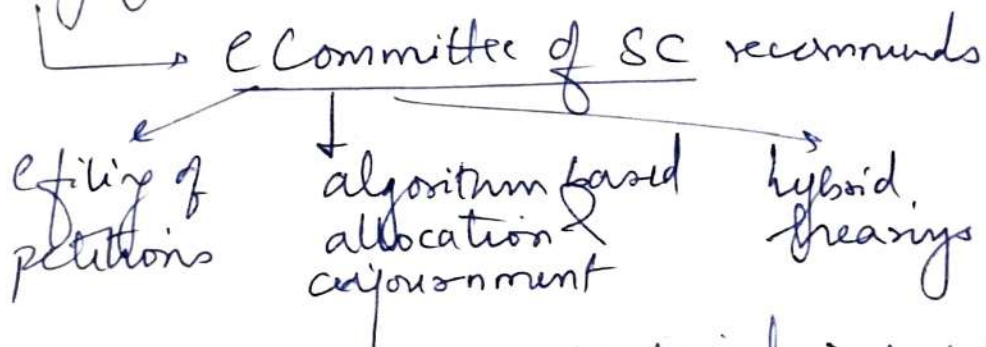 eCommittee of SC recommends
efiling of petitions
algorithm based allocation & adjournment
hybrid hearings